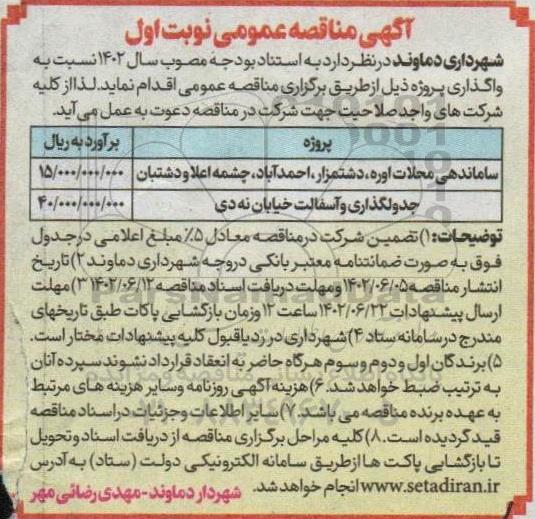 آگهی مناقصه عمومی نوبت اول
شهرداری دماوند در نظر دارد به استناد بودجه مصوب سال ۱۴۰۲ نسبت به
واگذاری پروژه ذیل از طریق برگزاری مناقصه عمومی اقدام نماید. لذا از کلیه
شرکت های واجد صلاحیت جهت شرکت در مناقصه دعوت به عمل می آید.
پروژه برآورد به ریال
ساماندهی محلات اوره، دشتمزار، احمدآباد، چشمه اعلا و دشتبان ۱۵/۰۰۰/۰۰۰/۰۰۰
جدولگذاری و آسفالت خیابان نه دی ۴۰/۰۰۰/۰۰۰/۰۰۰
توضیحات: ۱) تضمین شرکت در مناقصه معادل ۵٪ مبلغ اعلامی در جدول
فوق به صورت ضمانتنامه معتبر بانکی در وجه شهرداری دماوند ۲) تاریخ
انتشار مناقصه ۱۴۰۲/۰۶/۰۵ و مهلت دریافت اسناد مناقصه ۱۴۰۲/۰۶/۱۲ ۳) مهلت
ارسال پیشنهادات ۱۴۰۲/۰۶/۲۲ ساعت ۱۲ وزمان بازگشایی پاکات طبق تاریخهای
مندرج در سامانه ستاد ۴) شهرداری در رد یا قبول کلیه پیشنهادات مختار است.
۵) برندگان اول و دوم و سوم هرگاه حاضر به انعقاد قرارداد نشوند سپرده آنان
به ترتیب ضبط خواهد شد. ۶) هزینه آگهی روزنامه وسایر هزینه های مرتبط
به عهده برنده مناقصه می باشد. ۷) سایر اطلاعات و جزئیات در اسناد مناقصه
قید گردیده است. ۸) کلیه مراحل برگزاری مناقصه از دریافت اسناد و تحویل
تا بازگشایی پاکت ها از طریق سامانه الکترونیکی دولت (ستاد) به آدرس
www.setadiran.ir انجام خواهد شد.
شهردار دماوند - مهدی رضائی مهر